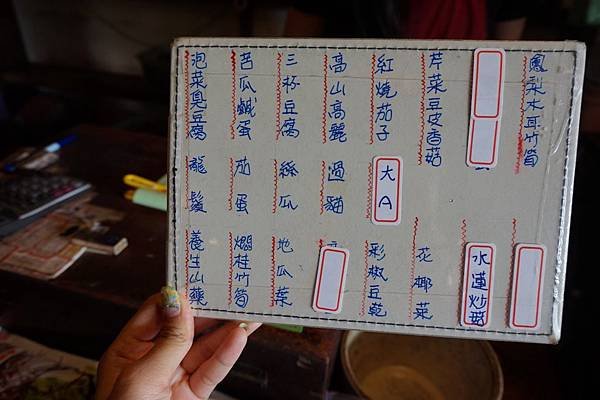 鳳梨木耳竹筍
芹菜豆皮香菇
紅燒茄子
高山高麗
三杯豆腐
苦瓜鹹蛋
泡菜臭豆腐
大A
過貓
絲瓜
茄蛋
龍鬚
水蓮炒菇
花椰菜
彩椒豆乾
地瓜葉
燜桂竹筍
養生山藥